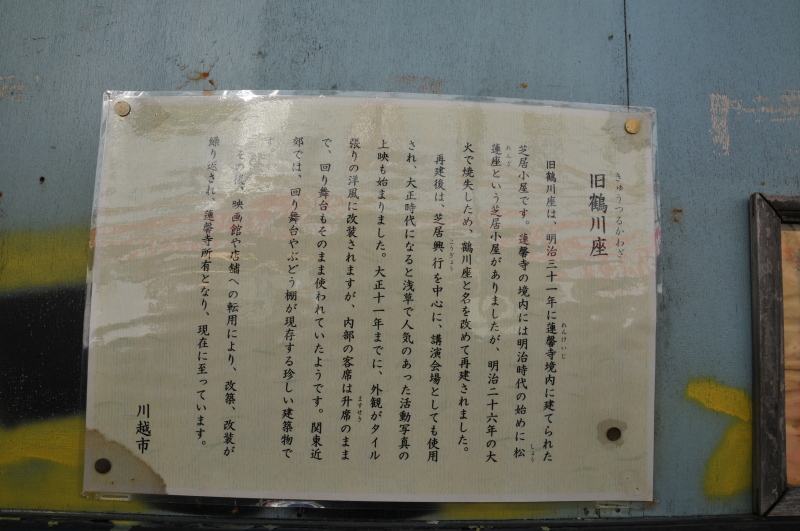 きゅうつるかわざ
旧鶴川座
旧鶴川座は、明治三十一年に蓮馨寺境内に建てられた
れんけいじ
芝居小屋です。蓮馨寺の境内には明治時代の始めに松
しょう
蓮座という芝居小屋がありましたが、明治二十六年の大
れんざ
火で焼失したため、鶴川座と名を改めて再建されました。
再建後は、芝居興行を中心に、講演会場としても使用
こうぎょう
され、大正時代になると浅草で人気のあった活動写真の
上映も始まりました。大正十一年までに、外観がタイル
張りの洋風に改装されますが、内部の客席は升席のまま
ますせき
で、回り舞台もそのまま使われていたようです。関東近
郊では、回り舞台やぶどう棚が現存する珍しい建築物で
す。
その後、映画館や店舗への転用により、改築、改装が
繰り返され、蓮馨寺所有となり、現在に至っています。
川越市